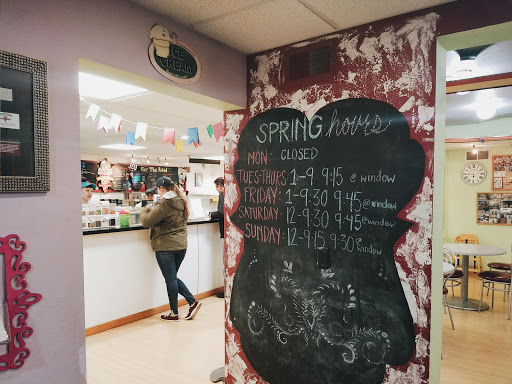 ICE
CREAM
For The Road
SPRING hours
MON: CLOSED
TUES-THURS: 1-9 9:15 @ window
FRIDAY: 1-9:30 9:45 @ window
SATURDAY: 12-9:30 9:45 @ window
SUNDAY: 12-9:15 9:30 @ window